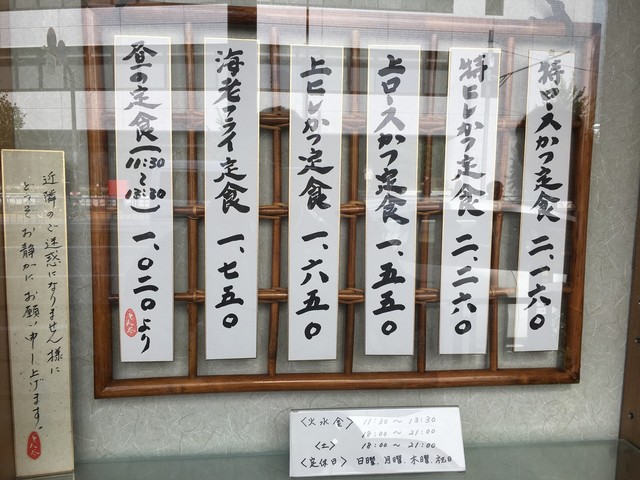 特ロースかつ定食 二、一六〇
特ヒレかつ定食 二、二六〇
上ロースかつ定食 一、五五〇
上ヒレかつ定食 一、六五〇
海老フライ定食 一、七五〇
昼の定食(11:30〜13:30) 一、〇二〇より
近隣のご迷惑になりません様に
どうぞお静かにお願い申し上げます。
〈火水金〉 11:30〜13:30
18:00〜21:00
〈土〉 18:00〜21:00
〈定休日〉 日曜、月曜、木曜、祝日